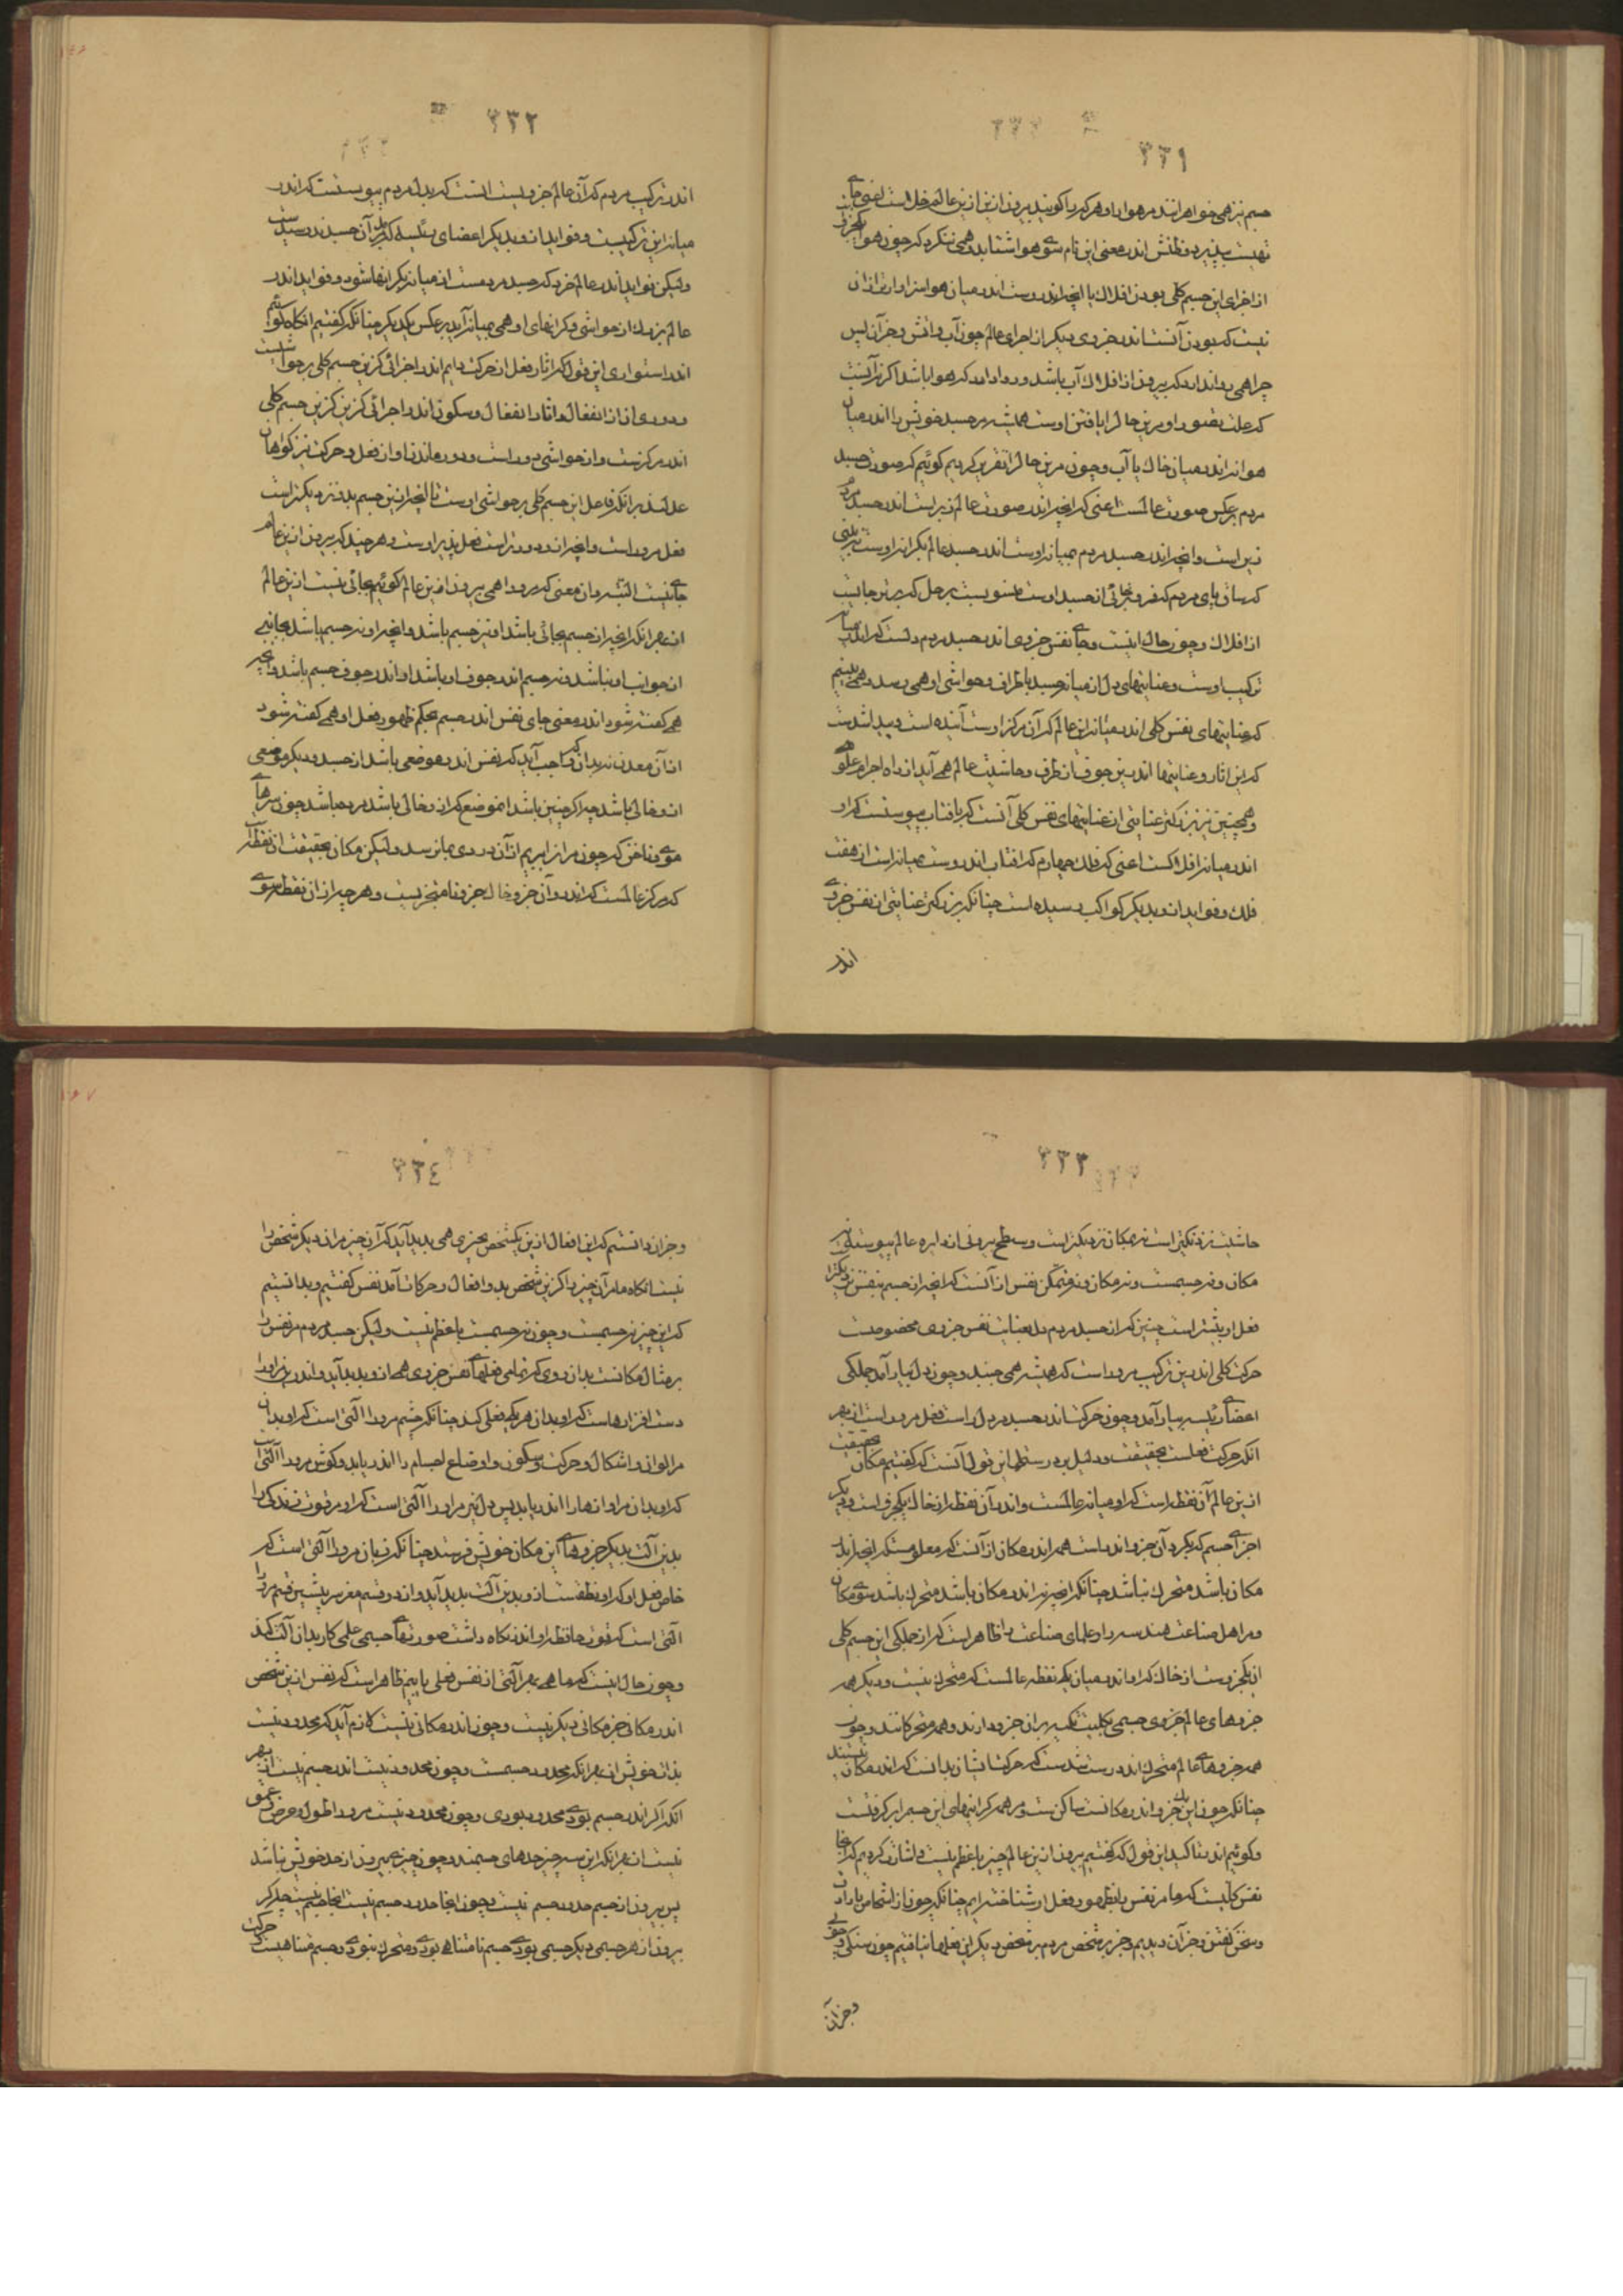 ٣٣١
جسم نیز همی خواهرانند مر هوا را و هر که را گویند بیرون ازین عالم خلا است اعنی جای
تهیست بپذیرد و ظنش اندر معنی این نام سوی هوا شتابد و همی ننگرد که چون هوا یکجزوی
از اجزای این جسم کلی بودن افلاک با آنچه اندروست اندر میان هوا سزاوارتر ازان
نیست که بودن آنست اندر جزوی دیگر از اجزای عالم چون آب و آتش و جز آن پس
چرا همی روا ندارد که بیرون از افلاک آب باشد و روا دارد که هوا باشد اگر نه آنست
که علت تصور او مرین حال را یافتن اوست همیشه مر جسد خویش را اندر میان
هوا نه اندر میان خاک یا آب و چون مرین حال را تقریر کردیم گوئیم که صورت جسد
مردم بر عکس صورت عالمست اعنی که آنچه اندر صورت عالم زبر است اندر جسد مردم
زیر است و آنچه اندر جسد مردم بمیانه اوست اندر جسد عالم بکرانه اوست نه بینی
که ساق پای مردم که فروتر جائی از جسد اوست منسوبست بزحل که برترین جایست
از افلاک و چون حال اینست و جای نفس جزوی اندر جسد مردم دلست که اندر میانه
ترکیب اوست و عنایتهای دل از میانه جسد باطراف و حواشی او همی رسد و همی بینیم
که عنایتهای نفس کلی اندر میانه این عالم که آن مرکز اوست آینده است و پیدا شدست
که این آثار و عنایتها اندرین جوف از طرف و حاشیت عالم همی آید از راه اجرام علوی
و همچنین نیز بزرگتر عنایتی از عنایتهای نفس کلی آنست که بآفتاب پیوستست که او
اندر میانه افلاکست اعنی که فلک چهارم که آفتاب اندروست میانه است از هفت
فلک و فواید ازو بدیگر کواکب رسیده است چنانکه بزرگتر عنایتی از نفس جزوی
اندر
٣٣٢
اندر ترکیب مردم که آن عالم جزویست آنست که بدل مردم پیوستست که اندر
میانه این ترکیبست و فواید ازو بدیگر اعضای رئیسه که بدل آن جسد ندرسیدست
ولیکن فواید اندر عالم خرد که جسد مردمست از میانه بکرانها شود و فواید اندر
عالم بزرگ از حواشی و کرانهای او همی بمیانه آید بر عکس یکدیگر چنانکه گفتیم آنگاه گوئیم
اندر استواری این قول که آثار فعل از حرکت دایم اندر اجزائی کزین جسم کلی بر حواشیست
و دوری ازار انفعال و آثار انفعال و سکون اندر اجزائی کزین کزین جسم کلی
اندر مرکزست و از حواشی دور است و دور ماندن او از فعل و حرکت نیز گواهان
عدلند برانکه فاعل این جسم کلی بر حواشی اوست تا آنچه ازین جسم بدو نزدیکتر است
فعل مر دراست و آنچه ازو دورتر است فعل پذیر اوست و هر چند که بیرون ازین عالم
جای نیست البته مران معنی که مر ورا همی بیرون ازین عالم گوئیم بجائی نیست ازین عالم
از بهر آنکه آنچه از جسم بجائی باشد او نیز جسم باشد و آنچه او نه جسم باشد بجانبی
از جوانب او نباشد و نه جسم اندر جوف او باشد او اندر جوف جسم باشد و آنچه
همی گفته شود اندر معنی جای نفس اندر جسم بحکم ظهور فعل او همی گفته شود
ازان معدن نه بدان واجب آید که نفس اندر موضعی باشد از جسد و دیگر موضعی
ازو خالی باشد چه اگر چنین باشد آنموضع که ازو خالی باشد مرده باشد چون سرهای
موی و ناخن که چون مر از ابریم ازان دردی بما نرسد ولیکن مکان بحقیقت آن نقطه است
که مرکز عالمست که اندرو آن جزو خاک جز و نامتجزیست و هر چه ازان نقطه سوی
٣٣٣
حاشیت نزدیکتر است نه بمکان نزدیکتر است و سطح بیرونی از دایره عالم پیوسته نه
مکان و نه جسمست و نه مکان و نه متمکن نفس ازانست که آنچه از جسم بنفس نزدیکتر
فعل او بیشتر است چنین که از جسد مردم دل بعنایت نفس جزوی مخصوصست
حرکت کلی اندرین ترکیب مر دراست که همیشه همی جنبد و چون دل بیارآمد جملگی
اعضای رئیسه بیارآمد و چون حرکت اندر جسد مر دل راست فعل مر دراست از بهر
آنکه حرکت فعلست بحقیقت و دلیل بر درستی این قول آنست که گفتیم مکان بحقیقت
ازین عالم آن نقطه است که او میانه عالمست و اندر آن نقطه از خاک یکجزو است و دیگر
اجزای جسم که بگرد آن جزو اندر است همه اندر مکان ازانست که معلومست که آنچه اندر
مکان باشد متحرک نباشد چنانکه آنچه نه اندر مکان باشد متحرک باشد سوی مکان
و مر اهل صناعت هندسه را و علمای صناعت را ظاهر است که از جملگی این جسم کلی
آن یکجزوست از خاک که او اندر میان یک نقطه عالمست که متحرک نیست و دیگر همه
جزوهای عالم جزوی جسمی بکلیت تکیه بران جزو دارند و همه متحرکانند و چون
همه جزوهای عالم متحرک اند درست شدست که حرکت ایشان بدانست که اندر مکان نیستند
چنانکه چون این یک جزو اندر مکانست ساکن ست و مر همه کرانهای این جسم را برگرفتست
و گوئیم اندر تاکید این قول که گفتیم بیرون ازین عالم چیزی با عظم نیست و اشارت کردیم که آنجا
نفس کلیست که ما مر نفس را بظهور فعل او شناخته ایم چنانکه چون از اشخاص با رادت
و سخن گفتن و جز آن دیدیم و جز بر شخص مردم بر شخص دیگر این فعلها نیافتیم چون سنگی و چوبی
و جز آن
٣٣٤
و جز آن دانستیم که این افعال ازین یکشخص بچیزی همی پدید آید که آن چیز مران دیگر شخص را
نیست آنگاه ما مران چیز را کزین شخص بدو افعال و حرکات آمد نفس گفتیم و بدانستیم
که این چیز نه جسمست و چون نه جسمست با عظم نیست ولیکن جسد مردم مر نفس را
بر مثال مکانست بدان روی که تمامی فعلهای نفس جزوی همی ازو پدید آید و اندرین مر او را
دست افزارهاست که او بدان هر یکی فعلی کند چنانکه چشم مر ورا آلتی است که او بدان
مر الوان و اشکال و حرکت و سکون و اوضاع اجسام را اندر یابد و گوش مر ورا آلتی است
که او بدان مر آوازها را اندر یابد پس دل نیز مر او را آلتی است که او مر قوت زندگی را
بدین آلت بدیگر جزوهای این مکان خویش فرستد چنانکه زبان مر ورا آلتی است که
خاص فعل او که او نطقست ازو بدین آلت پدید آید و از دو قسم مغز سر پیشین قسم مر ورا
آلتی است که قوت حافظه او اندر نگاه داشت صورتهای جسمی و علمی کار بدان آلت کند
و چون حال اینست که ما همی بهر آلتی از نفس فعلی یابیم ظاهر است که نفس ازین شخص
اندر مکانی جز مکانی دیگر نیست و چون اندر مکانی نیست لازم آید که محدود نیست
بذات خویش از بهر آنکه محدود جسمست و چون محدود نیست اندر جسم نیست از بهر
آنکه اگر اندر جسم بودی محدود بودی و چون محدود نیست مر ورا طول و عرض و عمق
نیست از بهر آنکه این سه چیز حدهای جسمند و چون چیز بیرون از حد خویش نباشد
پس بیرون از جسم حدود جسم نیست و چون آنجا حدود جسم نیست آنجا جسم نیست چه اگر
بیرون از هر جسمی دیگر جسمی بودی جسم نامتناهی بودی و متحرک نبودی و جسم متناهیست و حرکت